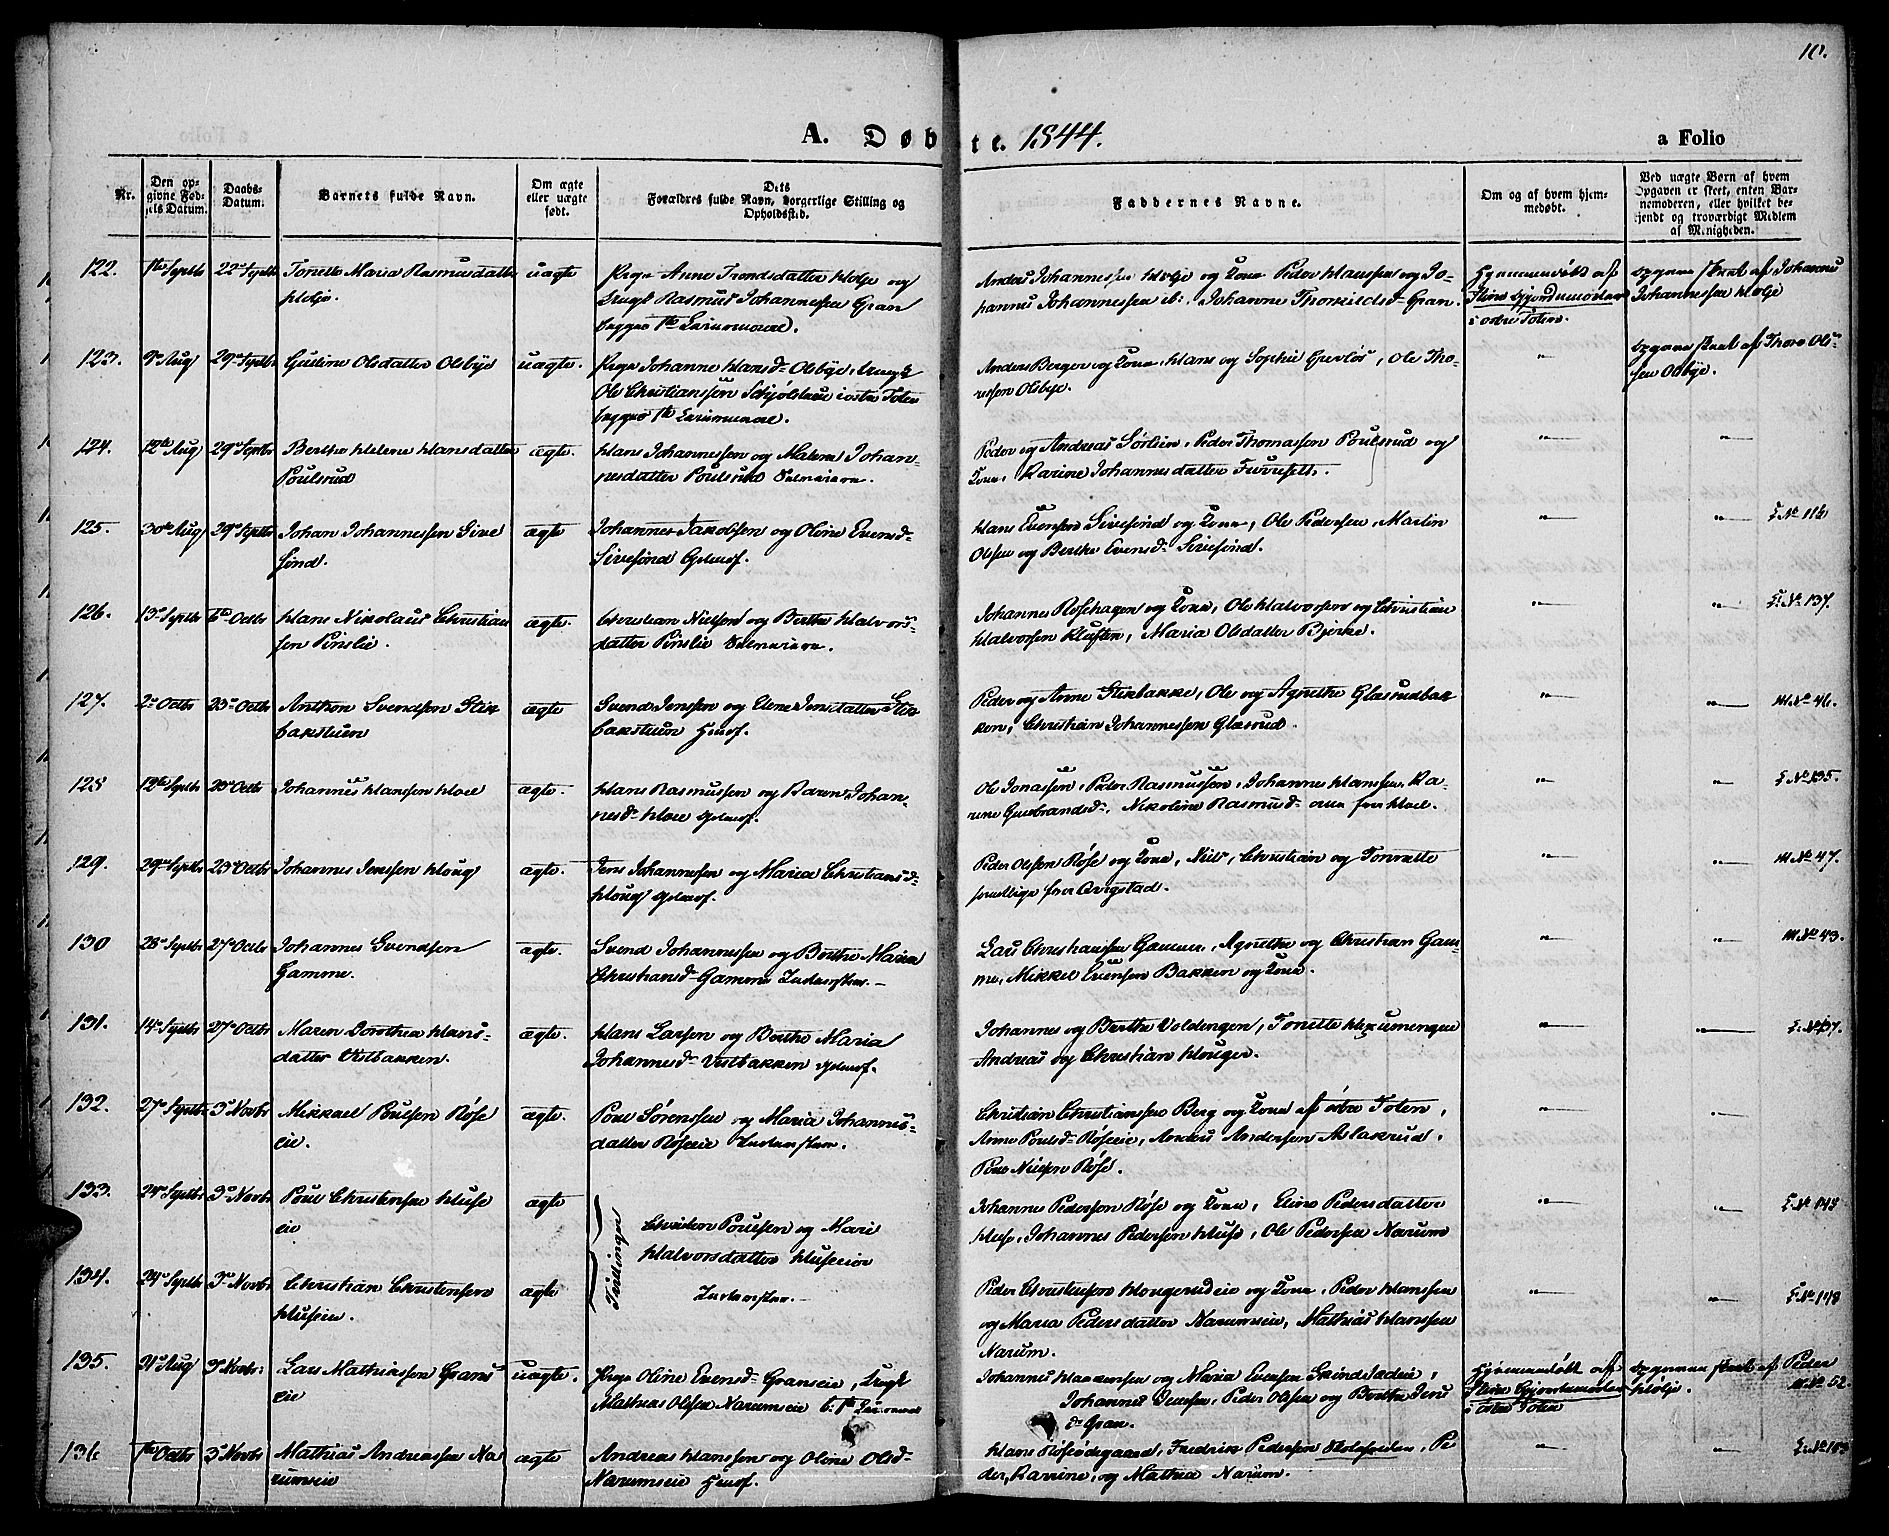 10.
A. Døbte. 1844.
a Folio
Nr.
Den opgivne Fødsels Datum.
Daabs-Datum.
Barnets fulde Navn.
Om ægte eller uægte født.
Dets Forældres fulde Navn, borgerlige Stilling og Opholdssted.
Faddernes Navne.
Om og af hvem hjemmedøbt.
Ved uægte Børn af hvem Opgaven er skeet, enten Barnemoderen, eller hvilket bekjendt og troværdigt Medlem af Menigheden.
122. 1ste Septbr 22de Septbr Tonette Maria Rasmusdatter uægte Pige Anne Trondsdatter Holje og
Holje. Ungk Rasmus Johannessen Gran
begges 1ste Leiermaal.
Anders Johannessen Holje og Kone Peder Hanssen og Jo-
hannes Johannessen ib: Johanne Thorkildsd- Gran.
Hjemmedøbt af Stine Gjordemoder i østre Toten.
Opgaven skeet af Johannes Johannessen Holje
123. 9de Aug 29de Septbr Gustine Olsdatter Olsbye uægte. Pige Johanne Hansd- Olsbye, Ungk
Ole Christianssen Schjølstue i østre Toten
begges 1ste Leiermaal
Anders Berger og Kone, Hans og Sophie Gevlos, Ole Tho-
ressen Olsbye.
Opgaven skeet af Thore Ols-
sen Olsbye.
124. 12te Aug 29de Septbr Berthe Helene Hansdatter ægte. Hans Johannessen og Malene Johan-
Poulsrud nesdatter Poulsrud Selveiere.
Peder og Andreas Sørlien, Peder Thomassen Poulsrud og
Kone, Karine Johannesdatter Furuset.
125. 30te Aug 29de Septbr Johan Johannessen Sive ægte Johannes Jakobsen og Oline Evensd-
sind. Sivesind
Hans Evensen Sivesind og Kone, Ole Pedersen, Martin
Olsen og Berthe Evensd- Sivesind.
№ 116
126. 13de Septbr 6te Octbr Hans Nikolaus Christian ægte. Christian Nielsen og Berthe Halvors-
sen Pinslie. datter Pinslie Selveiere.
Johannes Røsehagen og Kone, Ole Halvorsen og Christian
Halvorsen Kluften, Maria Olsdatter Bjerke.
№ 137.
127. 2den Octbr 20de Octbr Anthon Svendsen Stik ægte Svend Jenssen og Elene Jensdatter Stik
bakstuen bakstuen Huusf.
Peder og Anne Stikbakke, Ole og Agnethe Glæsrudbak
ken, Christian Johannessen Glæsrud.
M. № 46.
128 12te Septbr 20de Octbr Johannes Hanssen Hoel ægte. Hans Rasmussen og Karen Johan-
nesd- Hoel
Ole Jonassen, Peder Rasmussen, Johannes Hanssen, Ka-
rine Gulbrandsd-, Nikoline Rasmusd- alle fra Hoel.
№ 135.
129. 29de Septbr 20de Octbr Johannes Jenssen Houg ægte. Jens Johannessen og Maria Christiansd-
Houg
Peder Olssen Røse og Kone, Niels, Christian og Tonette
M. № 47.
130 28de Septbr 27de Octbr Johannes Svendsen ægte. Svend Johannessen og Berthe Maria
Gamme. Christiansd- Gamme Inderster.
Lars Christianssen Gamme, Agnethe og Christian Gam-
me, Mikkel Evensen Bakken og Kone.
M. № 43.
131. 14de Septbr 27de Octbr Maren Dorothea Hans- ægte. Hans Larssen og Berthe Maria
datter Vestbakken. Johannesd- Vestbakken
Johannes og Berthe Voldengen, Tonette
Andreas og Christian Houger.
№ 137.
132. 27de Septbr 3de Novbr Mikkael Poulsen Røse ægte Poul Sørenssen og Maria Johannes-
eie. datter Røseeie Inderster.
Christian Christianssen Berg og Kone af østre Toten,
Anne Poulsd- Røseeie, Anders Andersen Aslakrud,
Poul Nielsen Røse.
133. 24de Septbr 3de Novbr Poul Christensen Huse ægte
eie
Tvillinger
Christen Poulsen og Mari
Halvorsdatter Huseeie
Inderster.
Johannes Pedersen Røse og Kone, Eline Pedersdatter
Huse, Johannes Pedersen Huse, Ole Pedersen Narum
№ 148
134. 24de Septbr 3de Novbr Christian Christensen ægte
Huseeie.
Peder Christensen Hougerudeie og Kone, Peder Hanssen
og Maria Pedersdatter Narumseie, Mathias Hanssen
Narum.
№ 148
135. 21de Aug 3de Novbr. Lars Mathiassen Grans uægte. Pige Oline Evensd- Granseie, Ungk
eie Mathias Olsen Narumseie b: 1ste Leiermaal
Johannes Hanssen og Maria Evensen
Johannes Evensen, Peder Olssen og Berthe Jens
d- Gran.
Hjemmedøbt af Stine Gjordemoder i østre Toten
Opgaven skeet af Peder Holje.
M. № 52.
136 1ste Octbr 3de Novbr Mathias Andreassen Na ægte Andreas Hanssen og Oline Olsd-
rumseie Narumseie Huusf.
Hans Røseødegaard, Fredrik Pedersen, Pe
der, Karine, og Mathea Narum.